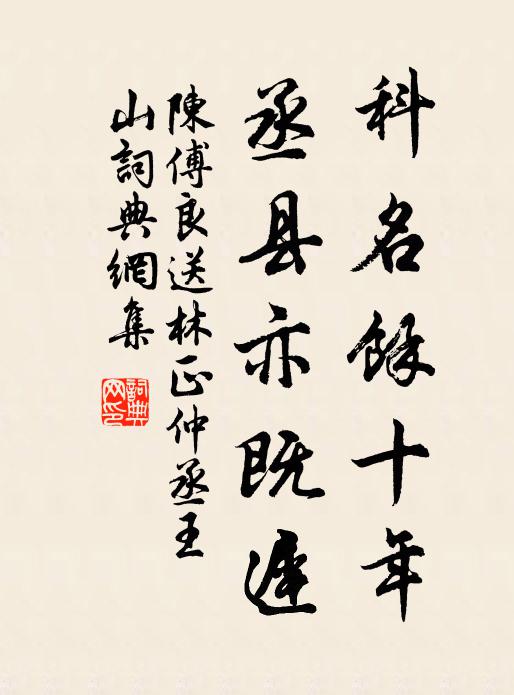 科名餘十年
丞县亦既遲
陳傅良送林正仲丞王
山詞典網集
詞典網印